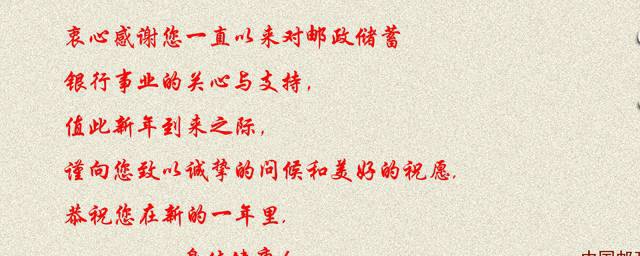 衷心感谢您一直以来对邮政储蓄
银行事业的关心与支持，
值此新年到来之际，
谨向您致以诚挚的问候和美好的祝愿，
恭祝您在新的一年里，